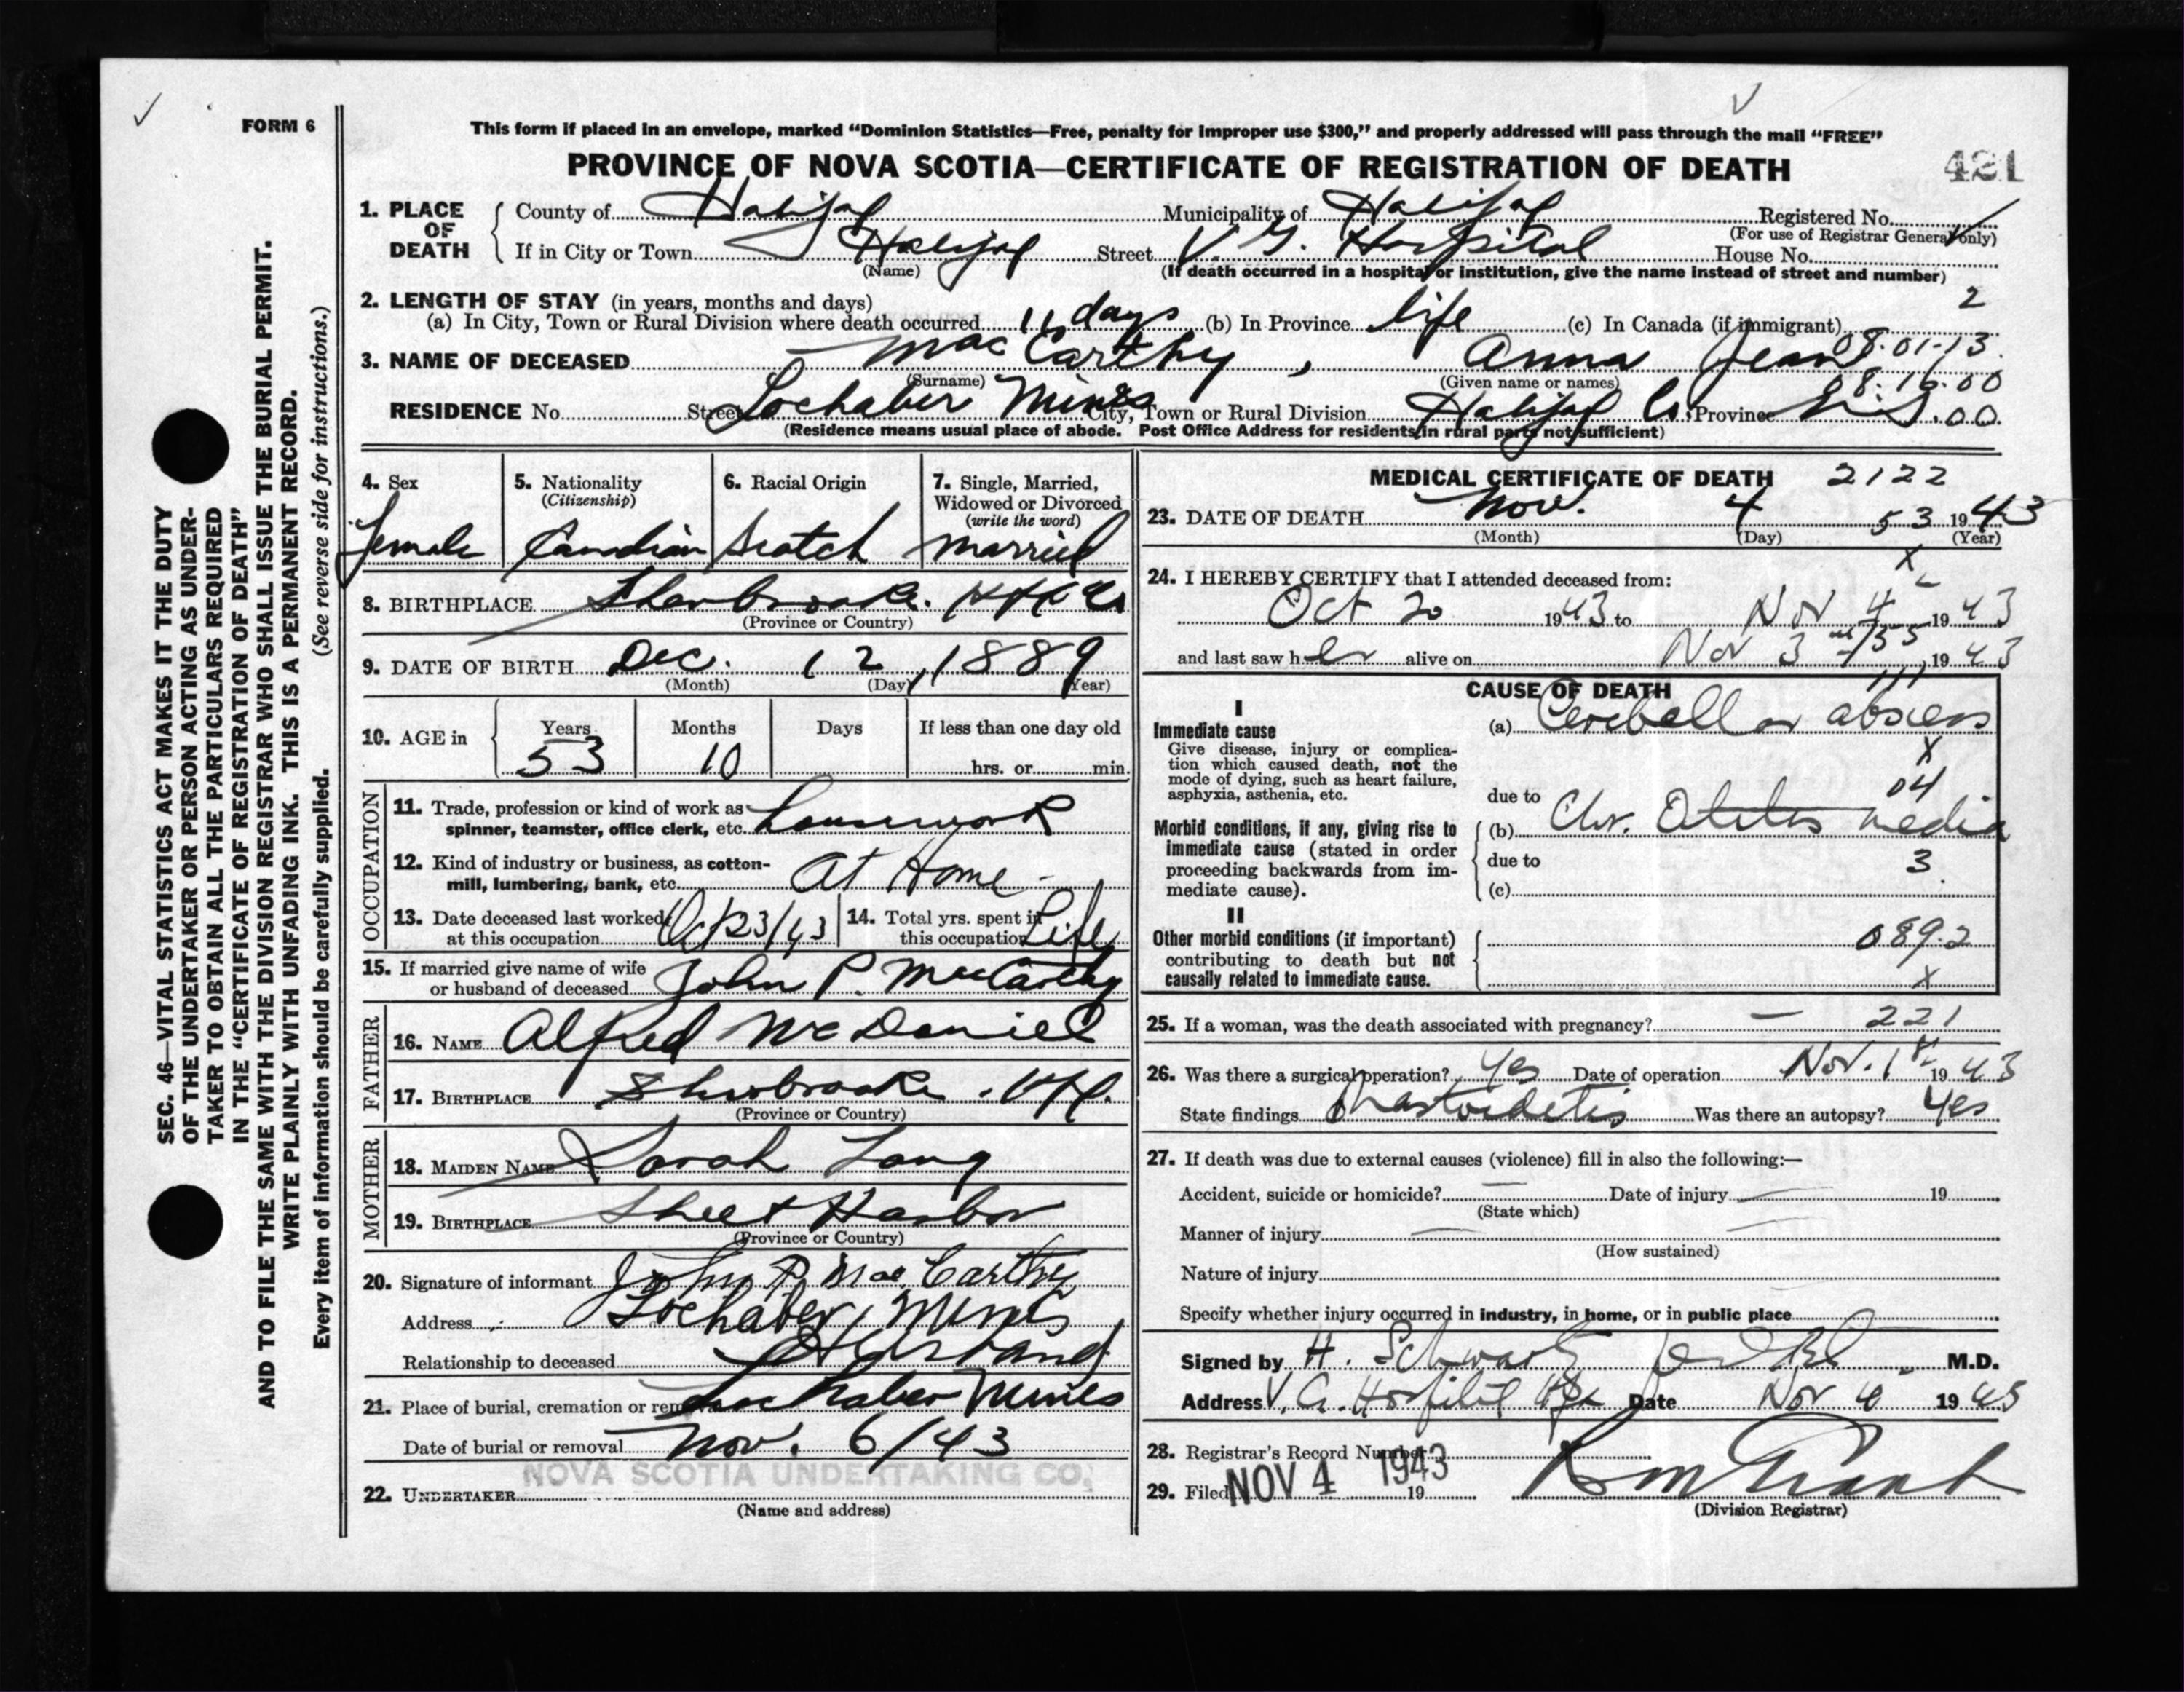 FORM 6
This form if placed in an envelope, marked “Dominion Statistics—Free, penalty for improper use $300,” and properly addressed will pass through the mail “FREE”
PROVINCE OF NOVA SCOTIA—CERTIFICATE OF REGISTRATION OF DEATH
421
1. PLACE OF DEATH
County of Halifax Municipality of Halifax Registered No.
(For use of Registrar General only)
If in City or Town Halifax Street V. G. Hospital House No.
(Name) (If death occurred in a hospital or institution, give the name instead of street and number)
2. LENGTH OF STAY (in years, months and days) 2
(a) In City, Town or Rural Division where death occurred days (b) In Province life (c) In Canada (if immigrant)
08.01.13.
3. NAME OF DECEASED MacCarthy, Anna Jean
(Surname) (Given name or names) 08.16.00
RESIDENCE No. Street Lochaber Mines City, Town or Rural Division Halifax Co. Province N.S. .00
(Residence means usual place of abode. Post Office Address for residents in rural parts not sufficient)
4. Sex Female
5. Nationality (Citizenship) Canadian
6. Racial Origin Scotch
7. Single, Married, Widowed or Divorced (write the word) Married
8. BIRTHPLACE Sherbrooke. Hfx Co
(Province or Country)
9. DATE OF BIRTH Dec. 12, 1889
(Month) (Day) (Year)
10. AGE in Years Months Days If less than one day old
53 10 hrs. or min.
OCCUPATION
11. Trade, profession or kind of work as
spinner, teamster, office clerk, etc. housework
12. Kind of industry or business, as cotton-
mill, lumbering, bank, etc. At Home
13. Date deceased last worked
at this occupation Oct 23/43
14. Total yrs. spent in
this occupation Life
15. If married give name of wife
or husband of deceased John P. MacCarthy
FATHER
16. NAME Alfred McDaniel
17. BIRTHPLACE Sherbrooke. Hfx.
(Province or Country)
MOTHER
18. MAIDEN NAME Sarah Lang
19. BIRTHPLACE Sheet Harbor
(Province or Country)
20. Signature of informant John P. MacCarthy
Address Lochaber Mines
Relationship to deceased Husband
21. Place of burial, cremation or removal Lochaber Mines
Date of burial or removal Nov. 6/43
NOVA SCOTIA UNDERTAKING CO.
22. UNDERTAKER
(Name and address)
MEDICAL CERTIFICATE OF DEATH 2122
23. DATE OF DEATH Nov. 4 53 1943
(Month) (Day) (Year)
x
24. I HEREBY CERTIFY that I attended deceased from:
Oct 20 1943 to Nov 4 1943
and last saw her alive on Nov 3 1943
CAUSE OF DEATH
I
Immediate cause
Give disease, injury or complica-
tion which caused death, not the
mode of dying, such as heart failure,
asphyxia, asthenia, etc.
(a) Cerebellar abscess
x
04
due to
Morbid conditions, if any, giving rise to
immediate cause (stated in order
proceeding backwards from im-
mediate cause).
(b) Chr. Otitis media
due to 3
(c)
II
Other morbid conditions (if important)
contributing to death but not
causally related to immediate cause.
089.2
x
25. If a woman, was the death associated with pregnancy? — 221
26. Was there a surgical operation? Yes Date of operation Nov. 1st 1943
State findings Mastoiditis Was there an autopsy? Yes
27. If death was due to external causes (violence) fill in also the following:—
Accident, suicide or homicide? — Date of injury — 19
(State which)
Manner of injury —
(How sustained)
Nature of injury
Specify whether injury occurred in industry, in home, or in public place
Signed by H. Schwartz M.D.
Address V. G. Hospital Hfx Date Nov 4 1943
28. Registrar's Record Number
29. Filed NOV 4 1943 19
(Division Registrar)
SEC. 46—VITAL STATISTICS ACT MAKES IT THE DUTY
OF THE UNDERTAKER OR PERSON ACTING AS UNDER-
TAKER TO OBTAIN ALL THE PARTICULARS REQUIRED
IN THE “CERTIFICATE OF REGISTRATION OF DEATH”
AND TO FILE THE SAME WITH THE DIVISION REGISTRAR WHO SHALL ISSUE THE BURIAL PERMIT.
WRITE PLAINLY WITH UNFADING INK. THIS IS A PERMANENT RECORD.
Every item of information should be carefully supplied. (See reverse side for instructions.)